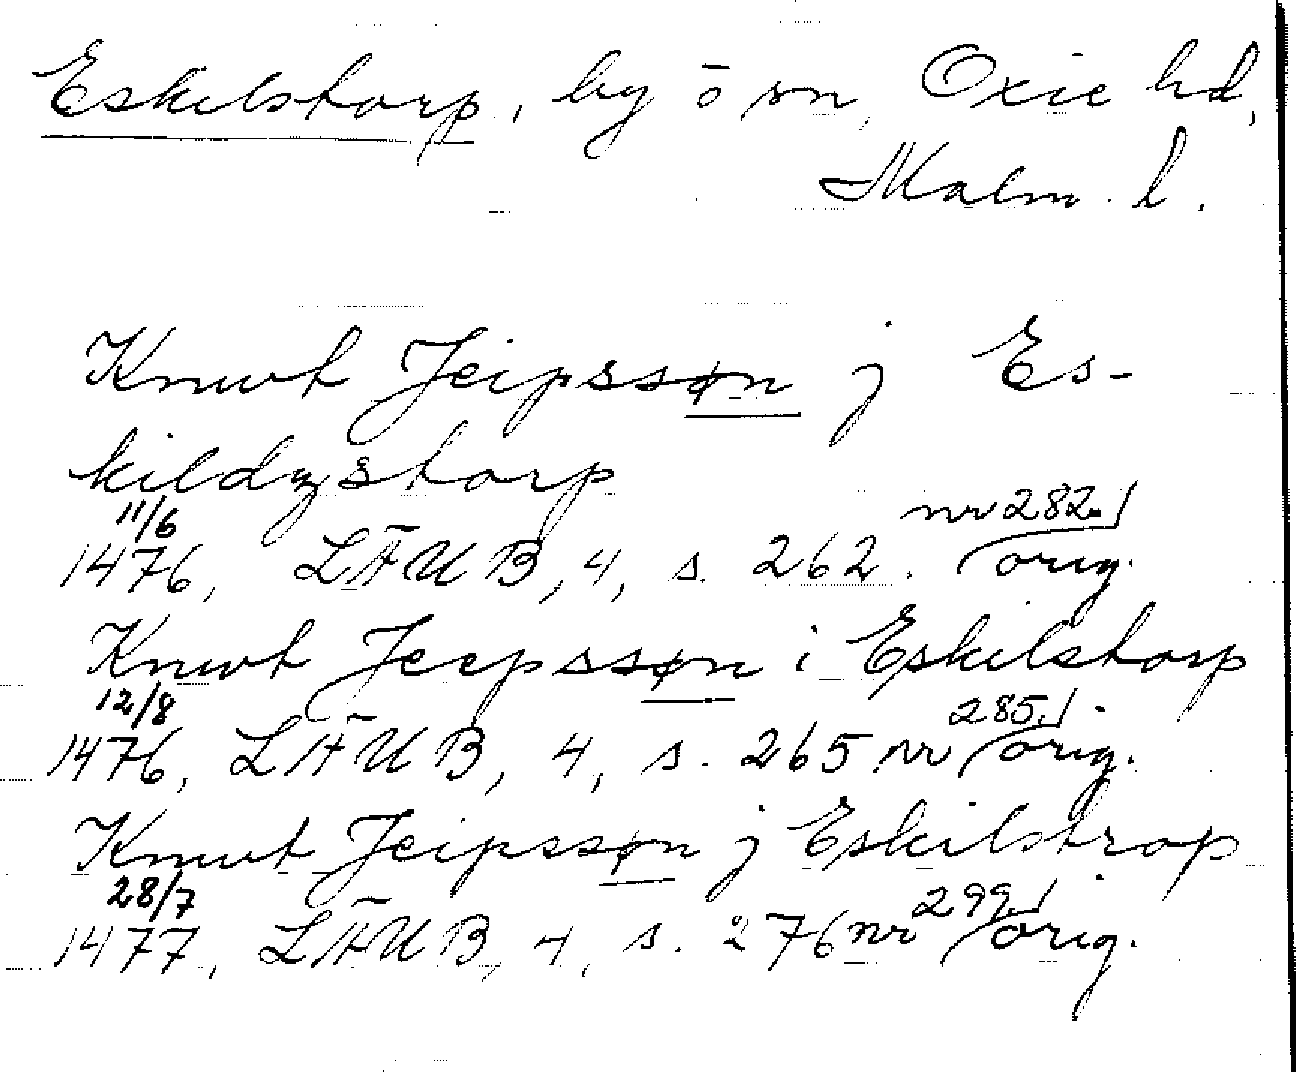 Eskilstorp, by ō sn, Oxie hd,
Malm. l.
Knwt Jeipssøn j Es-
kildzstorp
11/6 nr 282.
1476, LÄUB, 4, s. 262. orig.
Knwt Jeepssøn i Eskilstorp
12/8 285.
1476, LÄUB, 4, s. 265 nr orig.
Knwt Jeipssøn j Eskilstrop
28/7 299.
1477, LÄUB, 4, s. 276 nr orig.